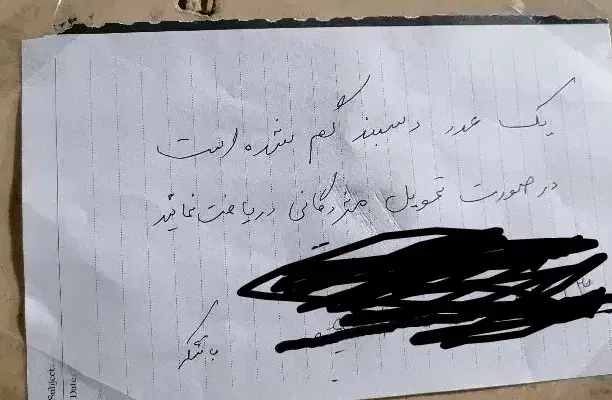 یک عدد دستبند گم شده است
در صورت تحویل مژدگانی دریافت نمائید
با تشکر
Subject:
Date: